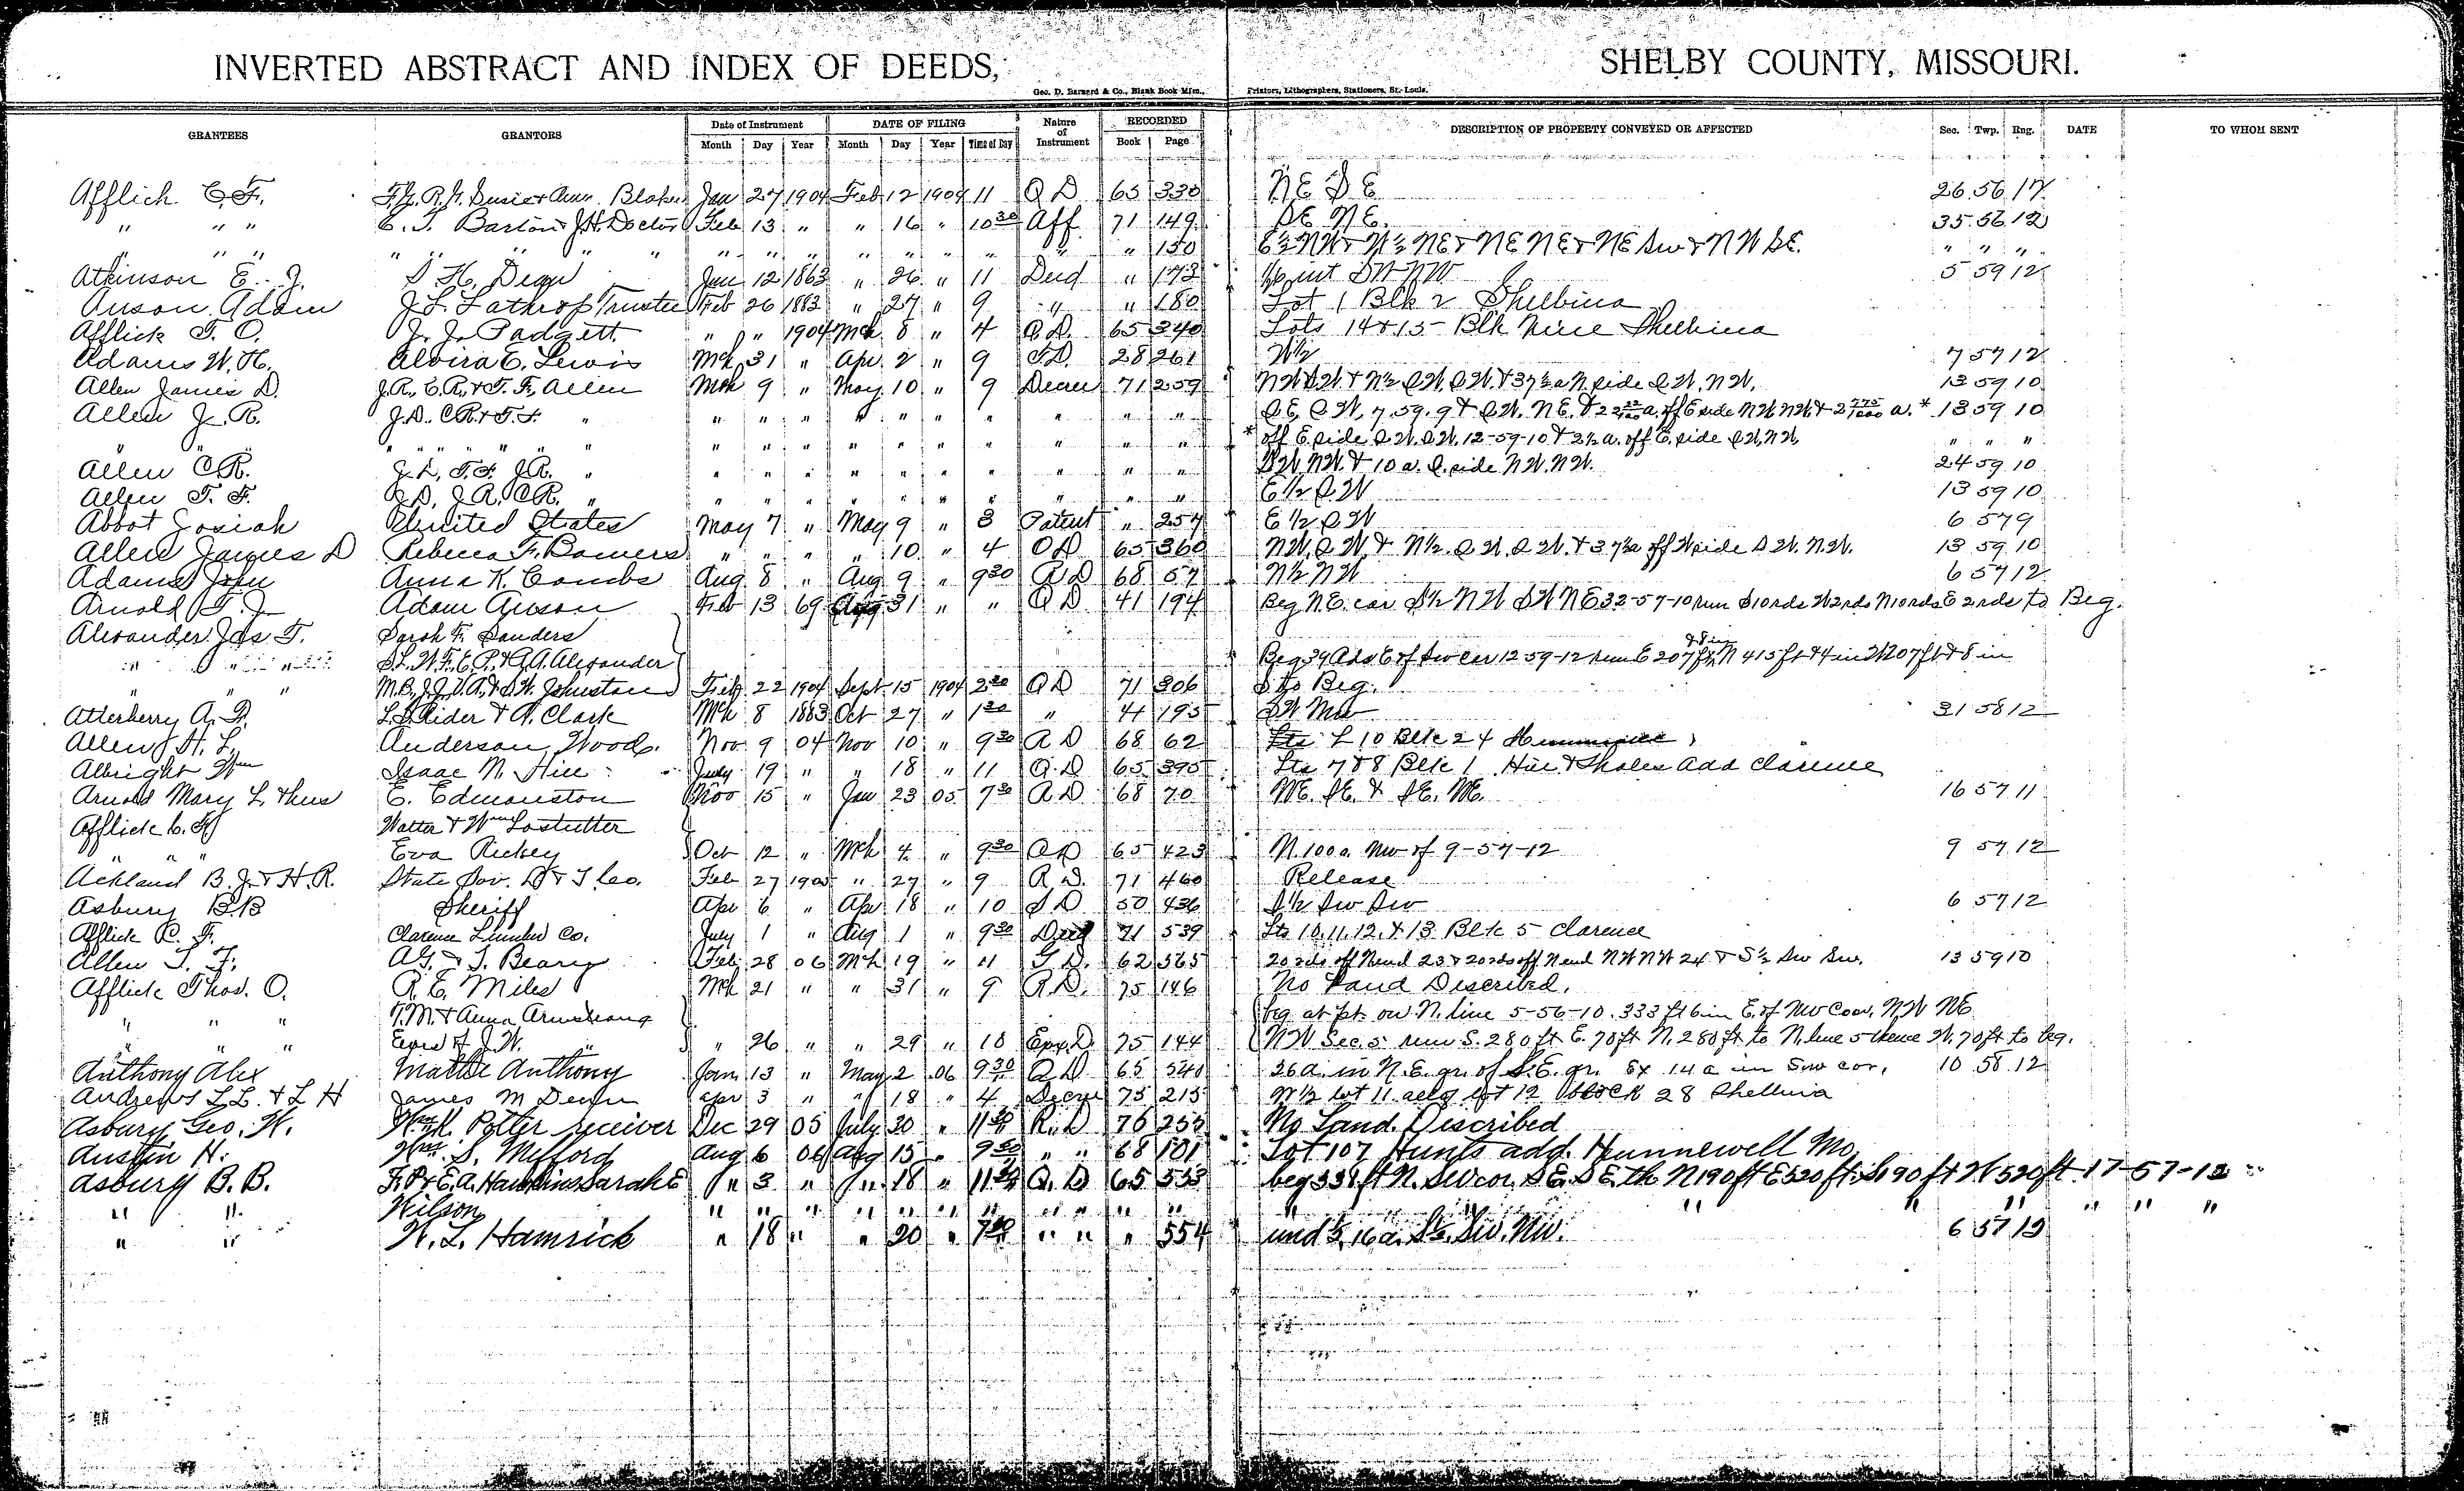 INVERTED ABSTRACT AND INDEX OF DEEDS, SHELBY COUNTY, MISSOURI.
Geo. D. Barnard & Co., Blank Book Mfrs., Printers, Lithographers, Stationers, St. Louis.
GRANTEES GRANTORS Date of Instrument DATE OF FILING Nature of Instrument RECORDED DESCRIPTION OF PROPERTY CONVEYED OR AFFECTED Sec. Twp. Rng. DATE TO WHOM SENT
Month Day Year Month Day Year Time of Day Book Page
Afflick C. F. Blaker Jan 27 1904 Feb 12 1904 11 Q D 65 330 N E S E 26 56 12
" " " C. T. Barton J. H. Doctor Feb 13 " " 16 " 10 30 Aff 71 149 SE NE. 35 56 12
" " " " " " " " " " " " " " " " 150 E½ NW & W½ NE & NE NE & NE SW & NW SE. " " "
Atkinson E. J. S. H. Dean Jan 12 1863 " 26 " 11 Deed " 173 int SW NW 5 59 12
Anson Adam J. L. Lathrop Trustee Feb 26 1883 " 27 " 9 " " 180 Lot 1 Blk 2 Shelbina
Afflick T. O. J. J. Padgett " " 1904 Mch 8 " 4 Q.D. 65 340 Lots 14 & 15 Blk Nine Shelbina
Adams W. H. Alvira E. Lewis Mch 31 " Apr. 2 " 9 T.D. 28 261 W½ 7 57 12
Allen James D. J. R., C. R., & T. F. Allen Mch 9 " May 10 " 9 Decree 71 259 NW SW & N½ SW. SW. & 37½ a N side SW. NW. 13 59 10
Allen J. R. J. D. C R. & T. F. " " " " " " " " " " " SE, SW, 7. 59. 9 & SW. NE. & 2 a. off E side NW NW & 2 775/1000 a. * 13 59 10
" " " " " " " " " " " " " " " " * off E side SW. SW. 12-59-10 & 2½ a. off E. side SW, NW, " " "
Allen C. R. J. D., T. F. J. R. " " " " " " " " " " " SW NW. & 10 a. S. side NW. NW. 24 59 10
Allen T. F. J. R. C R. " " " " " " " " " " " E ½ S W 13 59 10
Abbot Josiah United States May 7 " May 9 " 3 Patent " 257 E ½ S W 6 57 9
Allen James D Rebecca F. Bowers " " " " 10 " 4 Q D 65 360 NW, SW, & N½. SW. SW. & 37½ a off W side SW. NW. 13 59 10
Adams John Anna K. Combs Aug 8 " Aug 9 " 9 30 Q D 68 57 N½ NW 6 57 12
Arnold T. J. Adam Anson Feb 13 69 Aug 31 " " Q D 41 194 Beg N.E. cor S½ NW SW NE 32-57-10 run S 10 rds W 2 rds N 10 rds E 2 rds to Beg.
Alexander Jas. T. Sarah F. Sanders
" " " S. L. W. F. E. P. & G. A. Alexander Beg 34 Rds E of SW cor 12 59-12 run E 207 ft 8 in N 415 ft & 4 in W 207 ft & 8 in
" " Johnston Feb. 22 1904 Sept 15 1904 2 30 Q D 71 306 S to Beg.
Atterberry A. L. S. Rider & A. Clark Mch 8 1883 Oct 27 " 1 30 " 41 195 SW NW 31 58 12
Allen H. L. Anderson Woods. Nov. 9 04 Nov 10 " 9 30 Q D 68 62 Lts 10 Blk 24
Albright Wm Isaac N. Hill July 19 " " 18 " 11 Q. D 65 395 Lts 7 & 8 Blk 1 Hill & Sholes add Clarence
Arnold Mary L. & hus E. Edmonston Nov 15 " Jan 23 05 7 30 Q D 68 70 NE. SE. & SE. NE. 16 57 11
Afflick C. F. Walter & Wm Lostutter
" " Eva Rickey Oct 12 " Mch 4 " 9 30 Q D 65 423 N. 100 a. NW of 9-57-12 9 57 12
Ackland B. J. & H. R. State Sav. L & T Co. Feb 27 1905 " 27 " 9 R. D. 71 460 Release
Asbury B.B Sheriff Apr 6 " Apr 18 " 10 S D 50 436 S½ SW SW 6 57 12
Afflick C. F. Clarence Lumber Co. July 1 " Aug 1 " 9 30 Deed 71 539 Lts 10, 11. 12. & 13. Blk 5 Clarence
Allen T. F. A. G. & T. Beary Feb 28 06 Mch 19 " 11 62 565 20 rds off N end 23 & 20 rds off N end NW NW 24 & S½ SW SW. 13 59 10
Afflick Thos. O. R. E. Miles Mch 21 " " 31 " 9 R.D. 75 146 No Land Described.
" " " T. M. & Anna Armstrong beg at pt. on N. line 5-56-10. 333 ft 6 in E. of NW Cor. NW NE
" " " J. W. " " 26 " " 29 " 10 75 144 NW Sec. 5 run S. 280 ft E. 70 ft N. 280 ft to N. line 5 thence W. 70 ft to beg.
Anthony Alex Mattie Anthony Jan 13 " May 2 06 9 30 Q D 65 540 26 a. in N.E. qr. of S.E. qr. Ex 14 a in SW cor. 10 58 12
Andrews L.L. & L H James M Dean apr 3 " " 18 " 4 Decree 75 215 W½ lot 11 all lot 12 Block 28 Shelbina
Asbury Geo. W. Potter receiver Dec 29 05 July 20 " 11 30 R. D 76 253 No Land Described
Austin H. Wm. S. Mefford Aug 6 06 Aug 15 " 9 30 " " 68 101 Lot 107 Hunts add. Hunnewell Mo.
Asbury B. B. F. P. & E. A. Hawkins Sarah E " 3 " " 18 " 11 30 Q. D 65 553 beg 338 ft N. SW cor. SE. SE. th N 190 ft E 520 ft S 190 ft W 520 ft 17-57-12
" " Wilson " " " " " " " " " " " " " " " " " "
" " W. L. Hamrick " 18 " " 20 " 7 30 " " " 554 und ⅓ 16 a. S½. SW. NW. 6 57 12